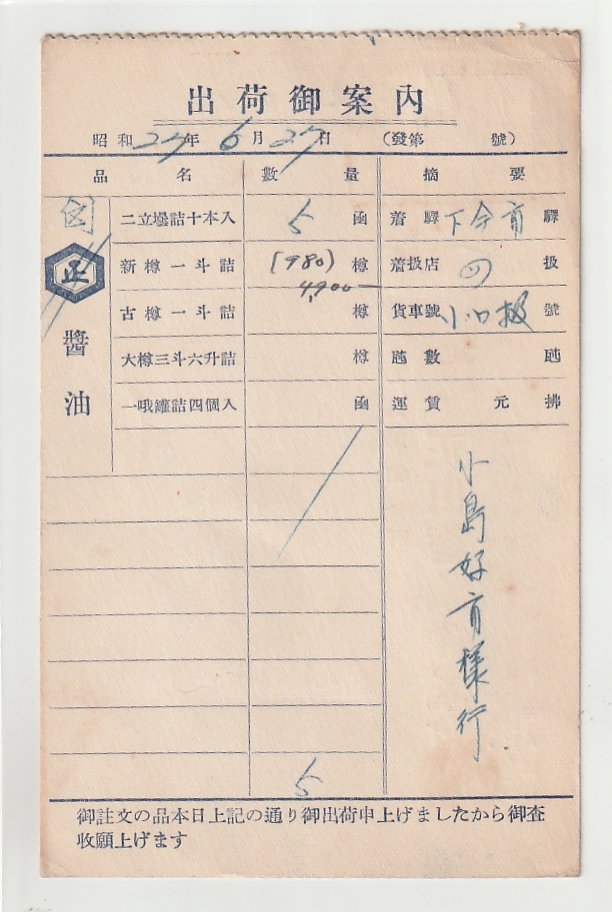 出荷御案内
昭和27年6月27日 (發第 號)
品名 數量 摘要
二立壜詰十本入 5 函 着驛 下今市 驛
正
新樽一斗詰 (980) 樽 着扱店 扱
4,900
古樽一斗詰 樽 貨車號 小口扱 號
醬油
大樽三斗六升詰 樽 瓲數 瓲
一哦罐詰四個入 函 運賃 元拂
小島好育様行
5
御註文の品本日上記の通り御出荷申上げましたから御査
收願上げます